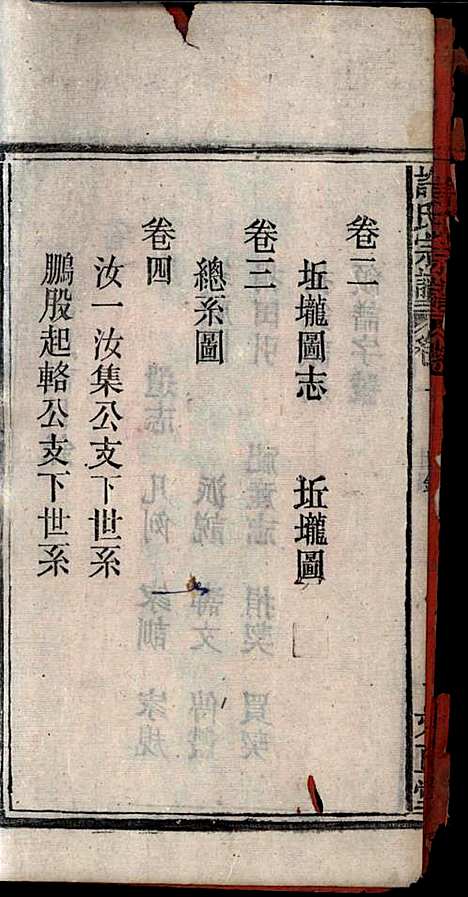 卷二
坵壠圖志　坵壠圖
卷三
總系圖
卷四
汝一汝集公支下世系
鵬股起輅公支下世系